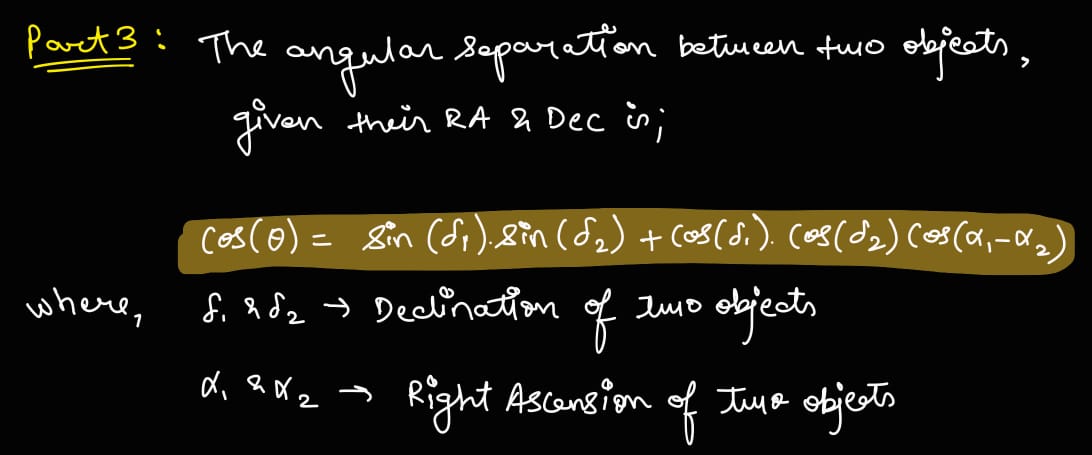 Part 3 : The angular separation between two objects,
given their RA & Dec is;
Cos(θ) = sin(δ₁).sin(δ₂) + cos(δ₁). cos(δ₂) cos(α₁-α₂)
where, δ₁ & δ₂ → Declination of two objects
α₁ & α₂ → Right Ascension of two objects